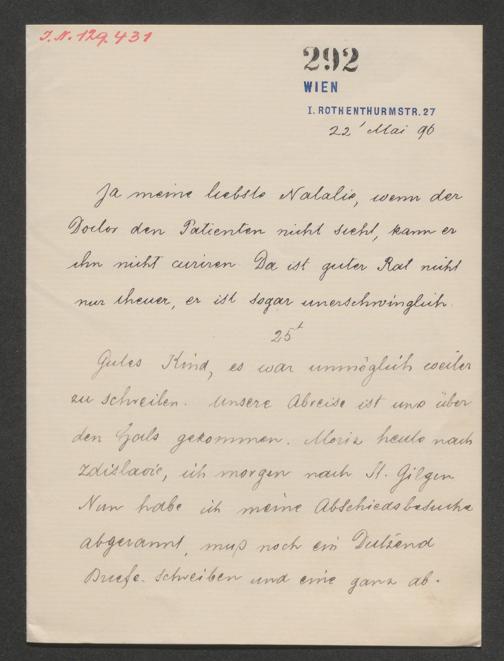 J.N. 129.431
292
WIEN
I. ROTHENTHURMSTR. 27
22' Mai 96
Ja meine liebste Natalie, wenn der
Doctor den Patienten nicht sieht, kann er
ihn nicht curiren. Da ist guter Rat nicht
nur theuer, er ist sogar unerschwinglich.
25t
Gutes Kind, es war unmöglich weiter
zu schreiben. Unsere Abreise ist uns über
den Hals gekommen. Moriz heute nach
Zdizlavic, ich morgen nach St. Gilgen
Nun habe ich meine Abschiedsbesuche
abgerannt, muß noch ein Dutzend
Briefe schreiben und eine ganz ab-